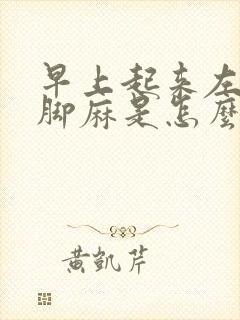 早上起来左
脚麻是怎麼
黄凱芹